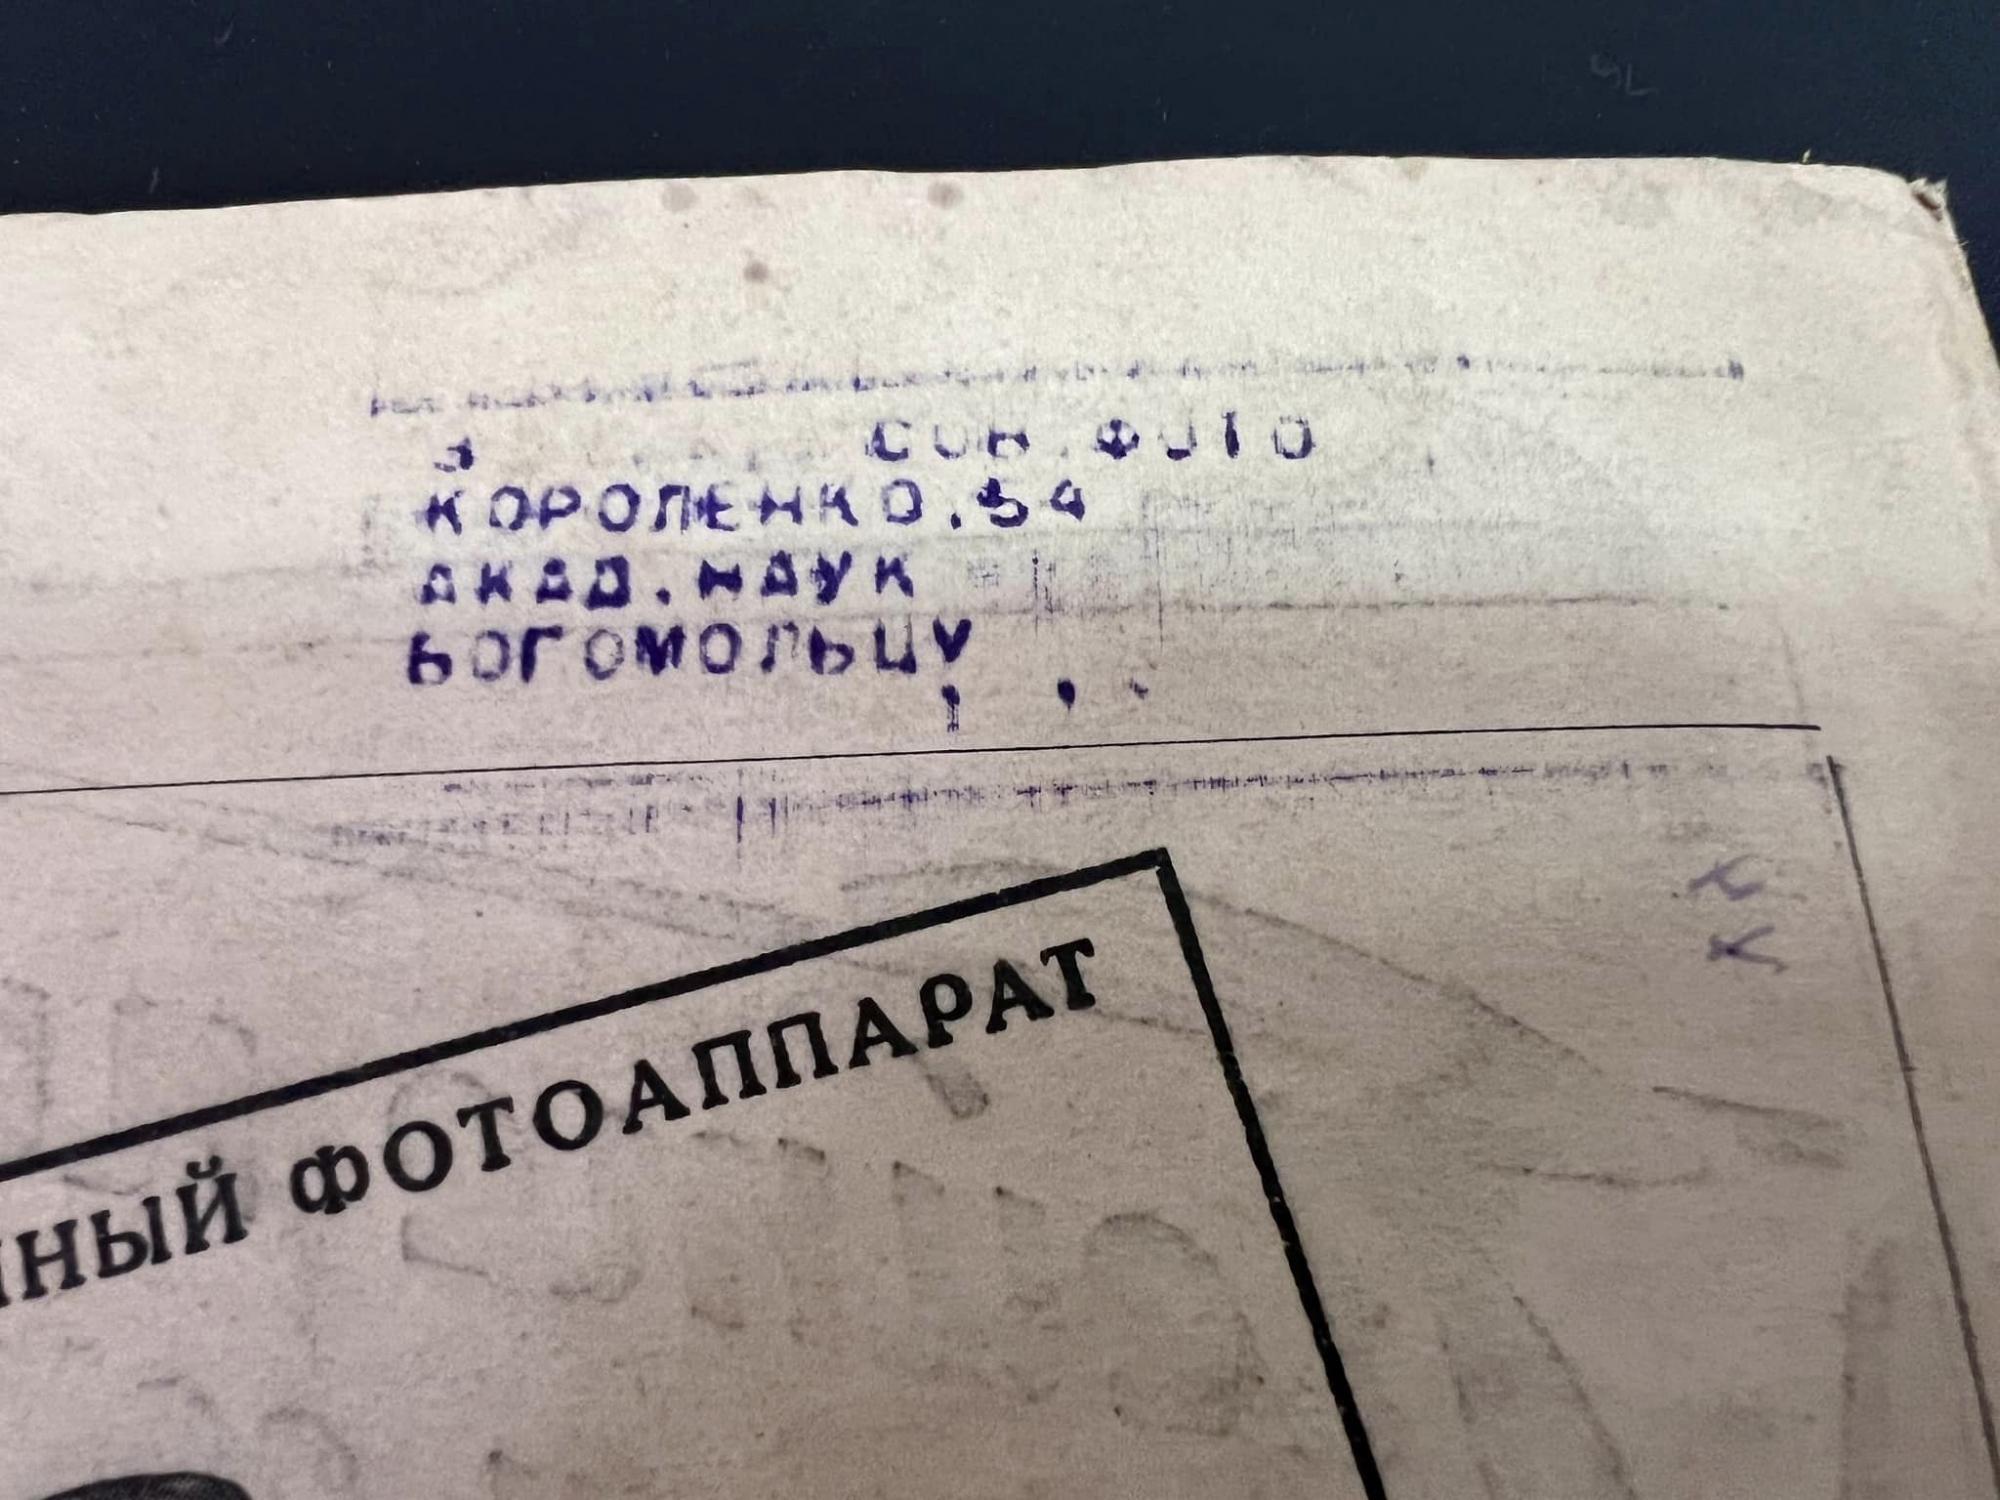 3 СОВ.ФОТО
КОРОЛЕНКО.54
АКАД.НАУК
БОГОМОЛЬЦУ
НЫЙ ФОТОАППАРАТ